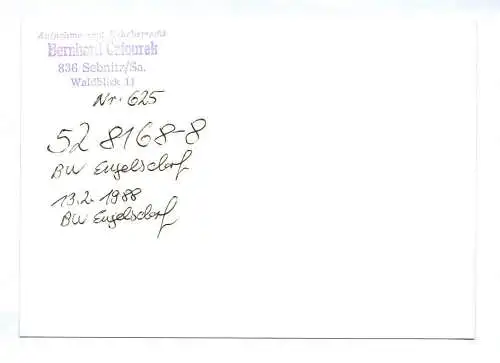 Aufnahme und Urheberrecht
Bernhard
836 Sebnitz/Sa.
Waldblick 11
Nr. 625
52 8168-8
BW Engelsdorf
13.2.1988
BW Engelsdorf